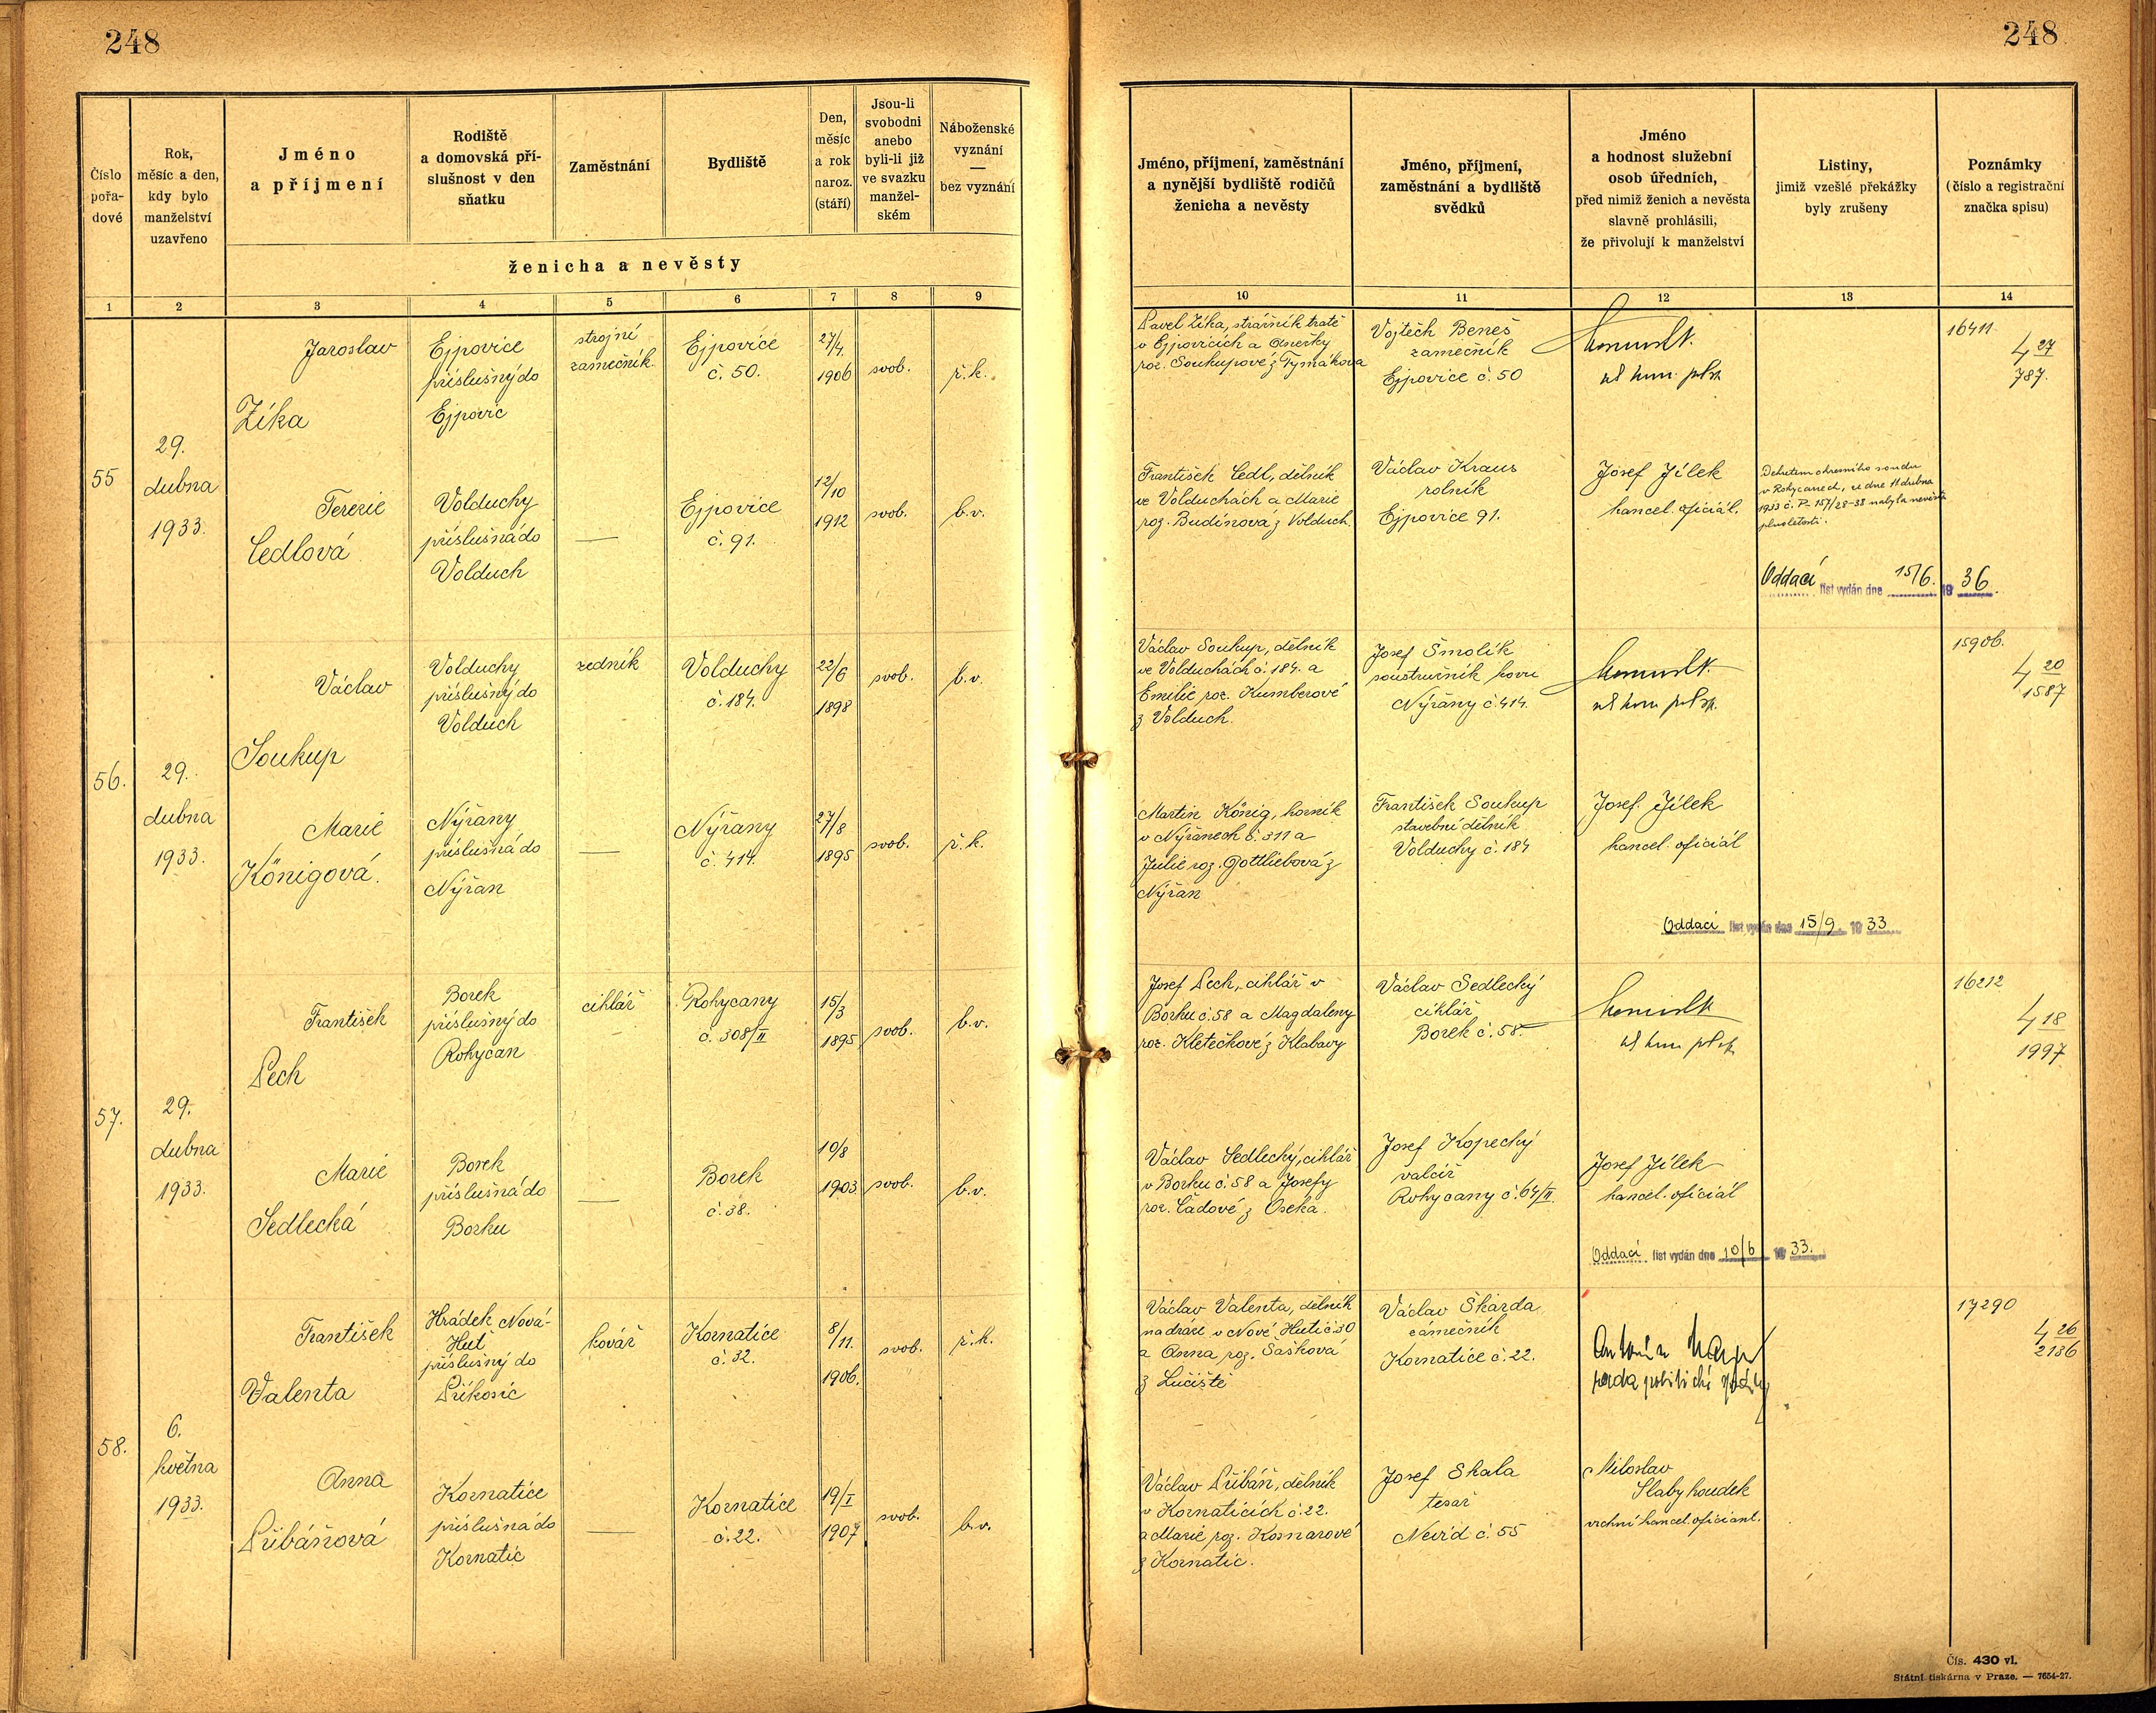 248
248
Číslo
pořa-
dové
Rok,
měsíc a den,
kdy bylo
manželství
uzavřeno
Jméno
a příjmení
Rodiště
a domovská pří-
slušnost v den
sňatku
Zaměstnání
Bydliště
Den,
měsíc
a rok
naroz.
(stáří)
Jsou-li
svobodni
anebo
byli-li již
ve svazku
manžel-
ském
Náboženské
vyznání
—
bez vyznání
ženicha a nevěsty
1 2 3 4 5 6 7 8 9
Jméno, příjmení, zaměstnání
a nynější bydliště rodičů
ženicha a nevěsty
Jméno, příjmení,
zaměstnání a bydliště
svědků
Jméno
a hodnost služební
osob úředních,
před nimiž ženich a nevěsta
slavně prohlásili,
že přivolují k manželství
Listiny,
jimiž vzešlé překážky
byly zrušeny
Poznámky
(číslo a registrační
značka spisu)
10 11 12 13 14
55
29.
dubna
1933.
Jaroslav
Zíka
Ejpovice
příslušný do
Ejpovic
strojní
zámečník.
Ejpovice
č. 50.
27/4.
1906
svob.
ř.k.
Pavel Zíka, strážník tratě
v Ejpovicích a Anežky
roz. Soukupové z Tymákova
Vojtěch Beneš
zámečník
Ejpovice č. 50
16411
4 27
787.
Terezie
Cedlová
Volduchy
příslušná do
Volduch
—
Ejpovice
č. 91.
12/10
1912
svob.
b.v.
František Cedl, dělník
ve Volduchách a Marie
roz. Budínová z Volduch.
Václav Kraus
rolník
Ejpovice 91.
Josef Jílek
kancel. oficiál.
Dekretem okresního soudu
v Rokycanech, ze dne 11 dubna
1933 č. P. 157/28-38 nabyla nevěsta
plnoletosti.
Oddací list vydán dne 15/6. 19 36.
56.
29.
dubna
1933.
Václav
Soukup
Volduchy
příslušný do
Volduch
zedník
Volduchy
č. 184.
22/6
1898
svob.
b.v.
Václav Soukup, dělník
ve Volduchách č. 184. a
Emilie roz. Kumberové
z Volduch.
Josef Smolík
soustružník kovu
Nýřany č. 414.
15906.
4 20
1587
Marie
Königová.
Nýřany
příslušná do
Nýřan
—
Nýřany
č. 414.
27/8
1895
svob.
ř.k.
Martin König, horník
v Nýřanech č. 311 a
Julie roz. Gottliebová z
Nýřan
František Soukup
stavební dělník
Volduchy č. 184
Josef Jílek
kancel. oficiál
Oddací list vydán dne 15/9. 19 33
57.
29.
dubna
1933.
František
Pech
Borek
příslušný do
Rokycan
cihlář
Rokycany
č. 308/II
15/3
1895
svob.
b.v.
Josef Pech, cihlář v
Borku č. 58 a Magdaleny
roz. Kletečkové z Klabavy
Václav Sedlecký
cihlář
Borek č. 58.
16212
4 18
1997
Marie
Sedlecká
Borek
příslušná do
Borku
—
Borek
č. 38.
10/8
1903
svob.
b.v.
Václav Sedlecký, cihlář
v Borku č. 58 a Josefy
roz. Čadové z Oseka.
Josef Kopecký
valcíř
Rokycany č. 64/II.
Josef Jílek
kancel. oficiál
Oddací list vydán dne 10/6 19 33.
58.
6.
května
1933.
František
Valenta
Hrádek Nová-
Huť
příslušný do
Příkosic
kovář
Kornatice
č. 32.
8/11.
1906.
svob.
ř.k.
Václav Valenta, dělník
na dráze v Nové Huti č. 30
a Anna roz. Šašková
z Lučiště
Václav Škarda
zámečník
Kornatice č. 22.
Antonín
rada politické správy
17290
4 26
2136
Anna
Přibáňová
Kornatice
příslušná do
Kornatic
—
Kornatice
č. 22.
19/I
1907
svob.
b.v.
Václav Přibáň, dělník
v Kornaticích č. 22.
a Marie roz. Kosnarové
z Kornatic.
Josef Skala
tesař
Nevid č. 55
Miloslav
Slabyhoudek
vrchní kancel. oficiant.
Čís. 430 vl.
Státní tiskárna v Praze. — 7654-27.